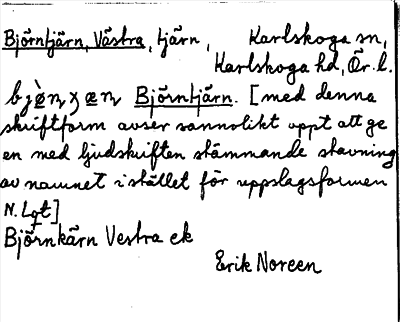 Björntjärn, Västra, tjärn, Karlskoga sn,
Karlskoga hd, Ör. l.
Björntjärn. [med denna
skriftform avser sannolikt uppt att ge
en med ljudskriften stämmande stavning
av namnet i stället för uppslagsformen
N. Lqt]
Björnkärn Vestra ek
Erik Noreen